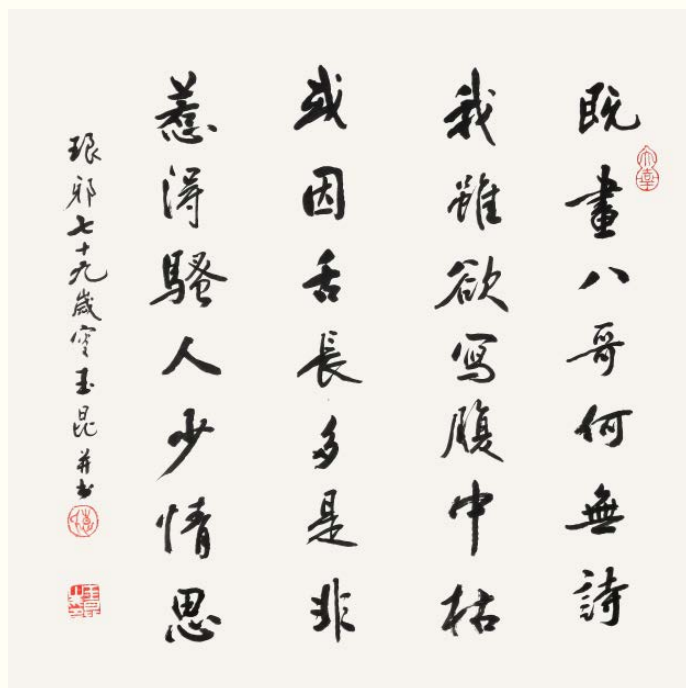 既畫八哥何無詩
我雖欲寫腹中枯
或因舌長多是非
惹得騷人少情思
琅邪七十九歲 玉昆并书